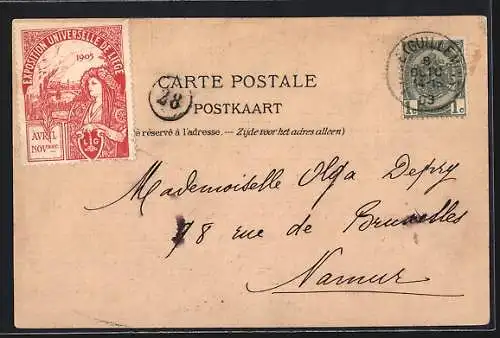 EXPOSITION UNIVERSELLE DE LIEGE
1905
AVRIL
NOVBRE
L G
CARTE POSTALE
28
POSTKAART
é réservé à l'adresse. — Zijde voor het adres alleen)
1c 1c
8
03
Mademoiselle Olga Depry
78 rue de Bruxelles
Namur